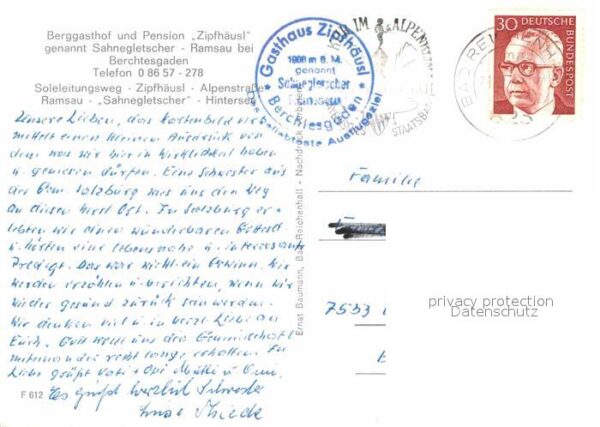 Berggasthof und Pension „Zipfhäusl"
genannt Sahnegletscher - Ramsau bei
Berchtesgaden
Telefon 0 86 57 - 278
Soleleitungsweg - Zipfhäusl - Alpenstraße
Ramsau - „Sahnegletscher" - Hintersee
Gasthaus Zipfhäusl
1000 m ü. M.
genannt
Sahnegletscher
Ramsau
Berchtesgaden
Das beliebteste Ausflugsziel
KUR IM ALPENKLIMA
STAATSBAD
BAD REICHENHALL
30 DEUTSCHE
BUNDESPOST
Unsere Lieben, das Kartenbild ver-
mittelt einen kleinen Ausdruck von
dem was wir hier in Wirklichkeit haben
u. genießen dürfen. Eine Schwester aus
der Gem. Salzburg wies uns den Weg
an diesen Ort. In Salzburg er-
lebten wir einen wunderbaren
u. hörten eine lebensnahe u. interessante
Predigt. Das war ein Gewinn. Wir
werden erzählen u. berichten, wenn wir
wieder gesund zurück sein werden.
Wir denken viel u. in Liebe an
Euch. Gott wolle uns der Gemeinschaft
miteinander recht lange erhalten. In
Liebe grüßt Vati + Omi
Es grüßt herzlich Schwester
F 612
Ernst Baumann, Bad Reichenhall - Nachdruck verboten
Familie
7533
privacy protection
Datenschutz